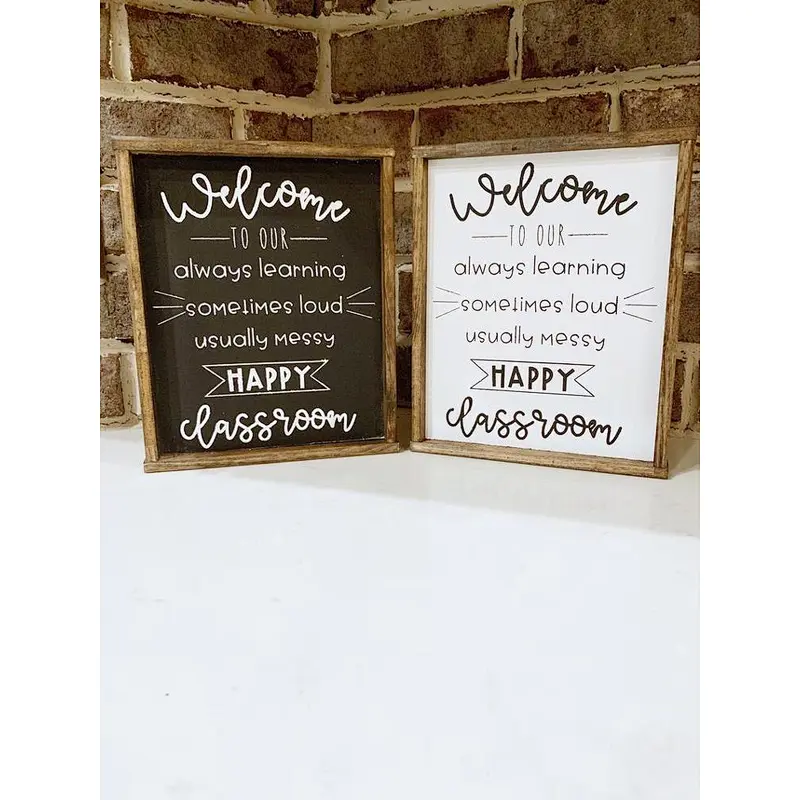 Welcome
TO OUR
always learning
sometimes loud
usually messy
HAPPY
classroom
Welcome
TO OUR
always learning
sometimes loud
usually messy
HAPPY
classroom